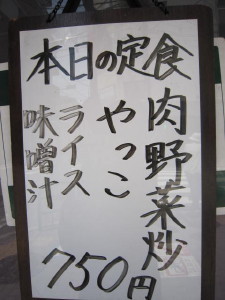 本日の定食
肉野菜炒
やっこ
ライス
味噌汁
750円